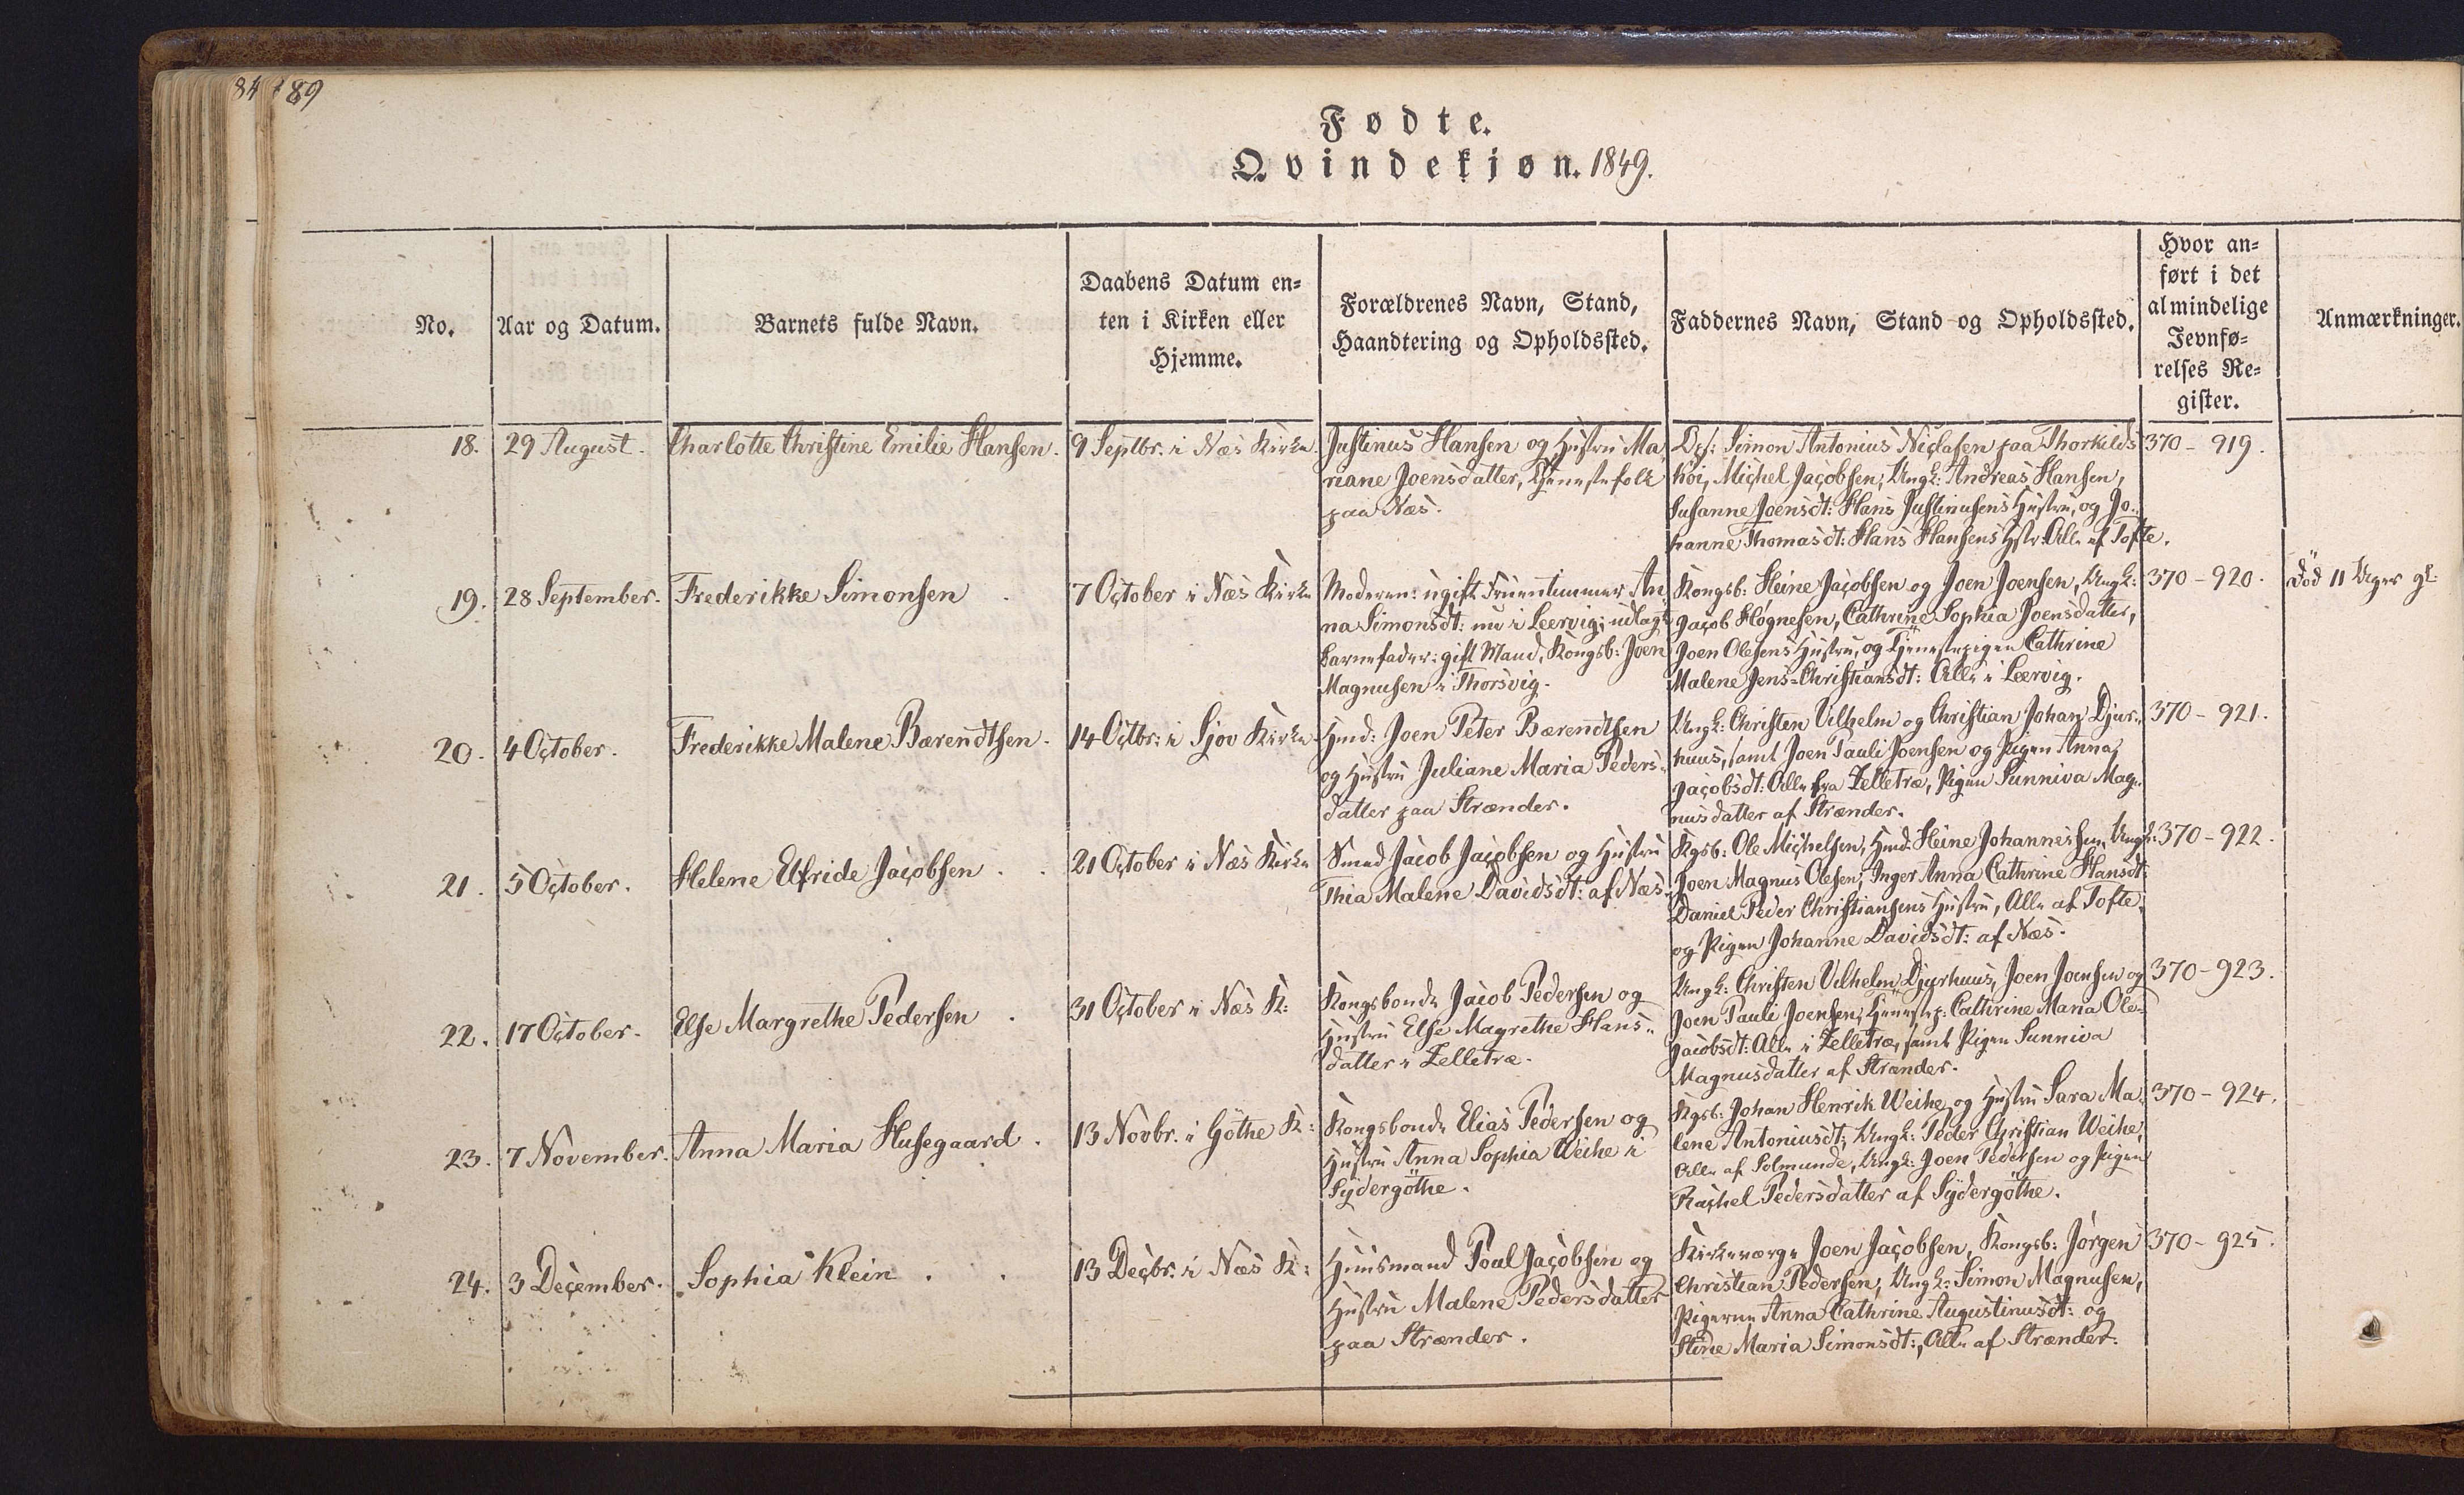 84
89
Fødte.
Qvindekjøn. 1849.
No.
Aar og Datum.
Barnets fulde Navn.
Daabens Datum en=
ten i Kirken eller
Hjemme.
Forældrenes Navn, Stand,
Haandtering og Opholdssted.
Faddernes Navn, Stand og Opholdssted.
Hvor an=
ført i det
almindelige
Jevnfø=
relses Re=
gister.
Anmærkninger.
18.
29 August.
Charlotte Christine Emilie Hansen.
9 Septbr. i Næs Kirke
Justinus Hansen og Hustru Ma
riane Joensdatter, Tjenestefolk
paa Næs.
Simon Antonius Niclasen paa Thorkilds
høi, Michel Jacobsen, Ungk: Andreas Hansen,
Susanne Joensdt: Hans Justinusens Hustru, og Jo-
hanne Thomasdt: Hans Hansens Hstr: Alle af Tofte.
370 - 919.
19.
28 September.
Frederikke Simonsen
7 October i Næs Kirke
Moderen: ugift Fruentimmer An
na Simonsdt: nu i Leervig; udlagt
Barnefader: gift Mand, Kongsb: Joen
Magnusen i Thorsvig.
Kongsb: Heine Jacobsen og Joen Joensen, Ungk:
Jacob Høgnesen, Cathrine Sophia Joensdatter,
Joen Olesens Hustru, og Tjenestepigen Cathrine
Malene Jens-Christiansdt: Alle i Leervig.
370 - 920.
Död 11 Uger gl.
20.
4 October.
Frederikke Malene Bærendtsen.
14 Octbr: i Sjov Kirke
Hmd: Joen Peter Bærendtsen
og Hustru Juliane Maria Peders-
datter paa Strænder.
Ungk: Christen Vilhelm og Christian Johan Djur-
huus, samt Joen Pauli Joensen og Pigen Anna
Jacobsdt: Alle fra Zelletræ, Pigen Sunniva Mag-
nusdatter af Strænder.
370 - 921.
21.
5 October.
Helene Elfride Jacobsen
21 October i Næs Kirke
Smed Jacob Jacobsen og Hustru
Thia Malene Davidsdt: af Næs.
Kgsb: Ole Michelsen, Hmd: Heine Johannessen, Ungk:
Joen Magnus Olesen, Inger Anna Cathrine Hansdt:
Daniel Peder Christiansens Hustru, Alle af Tofte,
og Pigen Johanne Davidsdt: af Næs.
370 - 922.
22.
17 October.
Else Margrethe Pedersen
31 October i Næs K:
Kongsbonde Jacob Pedersen og
Hustru Else Magrethe Hans-
datter i Zelletræ.
Ungk: Christen Vilhelm Djurhuus, Joen Joensen og
Joen Pauli Joensen, Tjenestep: Cathrine Maria Ole-
Jacobsdt: Alle i Zelletræ, samt Pigen Sunniva
Magnusdatter af Strænder.
370 - 923.
23.
7 November.
Anna Maria Husegaard.
13 Novbr. i Göthe K:
Kongsbonde Elias Pedersen og
Hustru Anna Sophia Weihe i
Sydergöthe.
Kgsb: Johan Henrik Weihe og Hustru Sara Ma
lene Antoniusdt; Ungk: Peder Christian Weihe,
Alle af Solmunde, Ungk: Joen Pedersen og Pigen
Rachel Pedersdatter af Sydergöthe.
370 - 924.
24.
3 December.
Sophia Klein
13 Decbr. i Næs K:
Huusmand Poul Jacobsen og
Hustru Malene Pedersdatter
paa Strænder.
Kirkeværge Joen Jacobsen, Kongsb: Jörgen
Christian Pedersen, Ungk: Simon Magnusen,
Pigerne Anna Cathrine Augustinusdt: og
Stine Maria Simonsdt:, Alle af Strænder.
370 - 925.